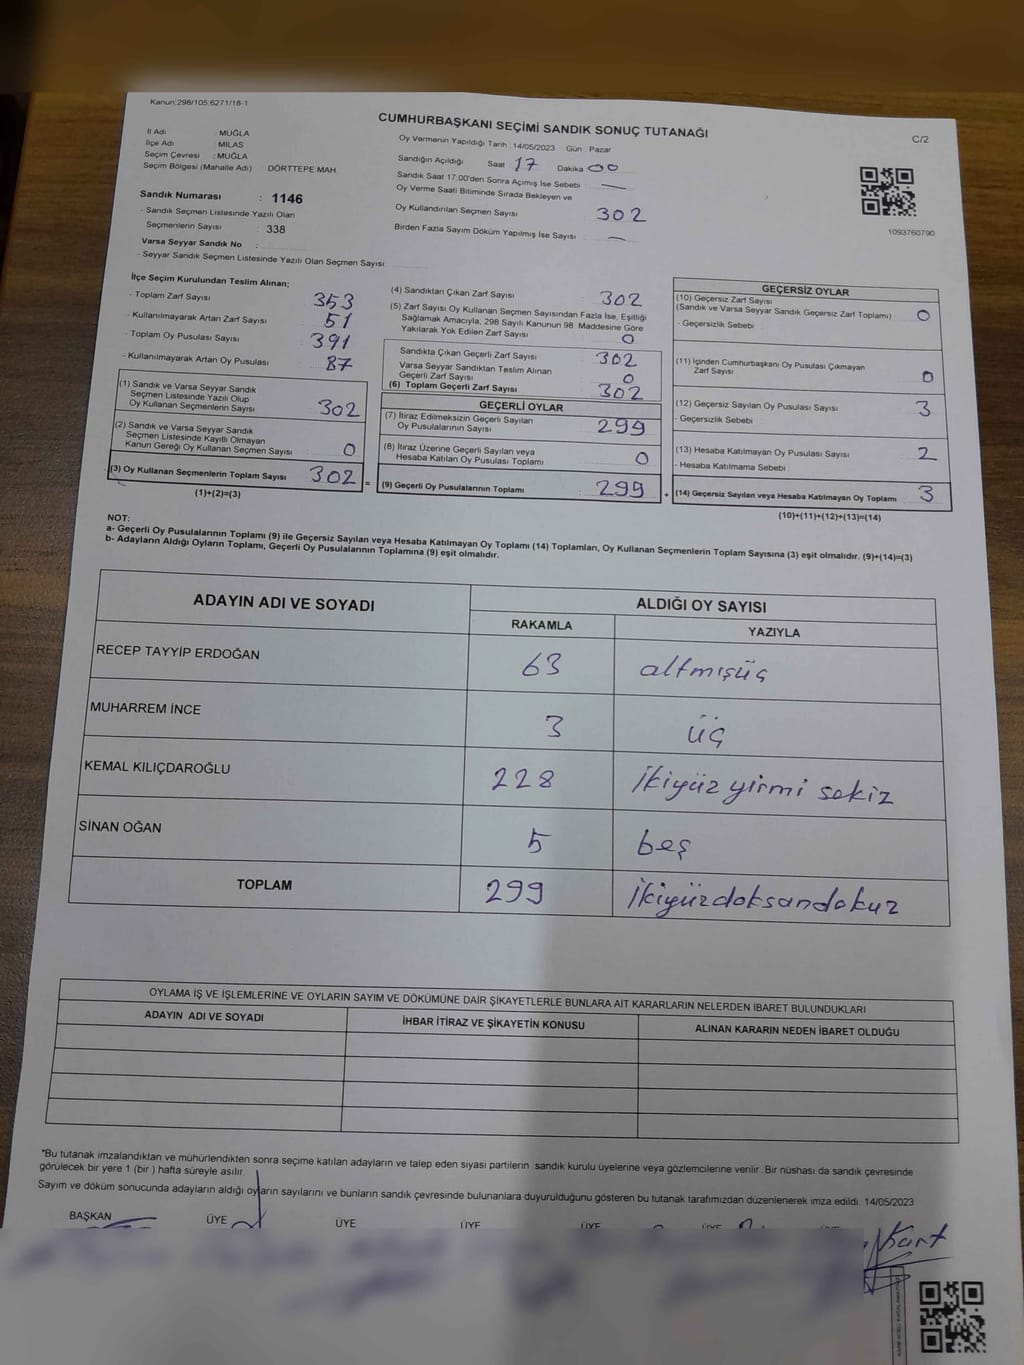 Kanun:298/105;6271/18-1
CUMHURBAŞKANI SEÇİMİ SANDIK SONUÇ TUTANAĞI
C/2
İl Adı : MUĞLA
İlçe Adı : MİLAS
Seçim Çevresi : MUĞLA
Seçim Bölgesi (Mahalle Adı) DÖRTTEPE MAH.
Sandık Numarası : 1146
- Sandık Seçmen Listesinde Yazılı Olan
Seçmenlerin Sayısı : 338
Varsa Seyyar Sandık No :
- Seyyar Sandık Seçmen Listesinde Yazılı Olan Seçmen Sayısı
Oy Vermenin Yapıldığı Tarih :14/05/2023 Gün : Pazar
Sandığın Açıldığı Saat 17 Dakika 00
Sandık Saat 17:00'den Sonra Açımış İse Sebebi —
Oy Verme Saati Bitiminde Sırada Bekleyen ve
Oy Kullandırılan Seçmen Sayısı 302
Birden Fazla Sayım Döküm Yapılmış İse Sayısı —
1093760790
İlçe Seçim Kurulundan Teslim Alınan;
- Toplam Zarf Sayısı 353
- Kullanılmayarak Artan Zarf Sayısı 51
- Toplam Oy Pusulası Sayısı 391
- Kullanılmayarak Artan Oy Pusulası 87
(1) Sandık ve Varsa Seyyar Sandık
Seçmen Listesinde Yazılı Olup
Oy Kullanan Seçmenlerin Sayısı 302
(2) Sandık ve Varsa Seyyar Sandık
Seçmen Listesinde Kayıtlı Olmayan
Kanun Gereği Oy Kullanan Seçmen Sayısı 0
(3) Oy Kullanan Seçmenlerin Toplam Sayısı 302 =
(1)+(2)=(3)
(4) Sandıktan Çıkan Zarf Sayısı 302
(5) Zarf Sayısı Oy Kullanan Seçmen Sayısından Fazla İse, Eşitliği
Sağlamak Amacıyla; 298 Sayılı Kanunun 98. Maddesine Göre
Yakılarak Yok Edilen Zarf Sayısı 0
Sandıkta Çıkan Geçerli Zarf Sayısı 302
Varsa Seyyar Sandıktan Teslim Alınan
Geçerli Zarf Sayısı 0
(6) Toplam Geçerli Zarf Sayısı 302
GEÇERLİ OYLAR
(7) İtiraz Edilmeksizin Geçerli Sayılan
Oy Pusulalarının Sayısı 299
(8) İtiraz Üzerine Geçerli Sayılan veya
Hesaba Katılan Oy Pusulası Toplamı 0
(9) Geçerli Oy Pusulalarının Toplamı 299 +
GEÇERSİZ OYLAR
(10) Geçersiz Zarf Sayısı
(Sandık ve Varsa Seyyar Sandık Geçersiz Zarf Toplamı) 0
- Geçersizlik Sebebi
(11) İçinden Cumhurbaşkanı Oy Pusulası Çıkmayan
Zarf Sayısı 0
(12) Geçersiz Sayılan Oy Pusulası Sayısı 3
- Geçersizlik Sebebi
(13) Hesaba Katılmayan Oy Pusulası Sayısı 2
- Hesaba Katılmama Sebebi
(14) Geçersiz Sayılan veya Hesaba Katılmayan Oy Toplamı 3
(10)+(11)+(12)+(13)=(14)
NOT:
a- Geçerli Oy Pusulalarının Toplamı (9) ile Geçersiz Sayılan veya Hesaba Katılmayan Oy Toplamı (14) Toplamları, Oy Kullanan Seçmenlerin Toplam Sayısına (3) eşit olmalıdır. (9)+(14)=(3)
b- Adayların Aldığı Oyların Toplamı, Geçerli Oy Pusulalarının Toplamına (9) eşit olmalıdır.
ADAYIN ADI VE SOYADI ALDIĞI OY SAYISI
RAKAMLA YAZIYLA
RECEP TAYYİP ERDOĞAN 63 altmışüç
MUHARREM İNCE 3 üç
KEMAL KILIÇDAROĞLU 228 İkiyüz yirmi sekiz
SİNAN OĞAN 5 beş
TOPLAM 299 İkiyüzdoksandokuz
OYLAMA İŞ VE İŞLEMLERİNE VE OYLARIN SAYIM VE DÖKÜMÜNE DAİR ŞİKAYETLERLE BUNLARA AİT KARARLARIN NELERDEN İBARET BULUNDUKLARI
ADAYIN ADI VE SOYADI İHBAR İTİRAZ VE ŞİKAYETİN KONUSU ALINAN KARARIN NEDEN İBARET OLDUĞU
*Bu tutanak imzalandıktan ve mühürlendikten sonra seçime katılan adayların ve talep eden siyasi partilerin sandık kurulu üyelerine veya gözlemcilerine verilir. Bir nüshası da sandık çevresinde
görülecek bir yere 1 (bir ) hafta süreyle asılır.
Sayım ve döküm sonucunda adayların aldığı oyların sayılarını ve bunların sandık çevresinde bulunanlara duyurulduğunu gösteren bu tutanak tarafımızdan düzenlenerek imza edildi. 14/05/2023
BAŞKAN ÜYE ÜYE ÜYE ÜYE ÜYE ÜYE
Kart